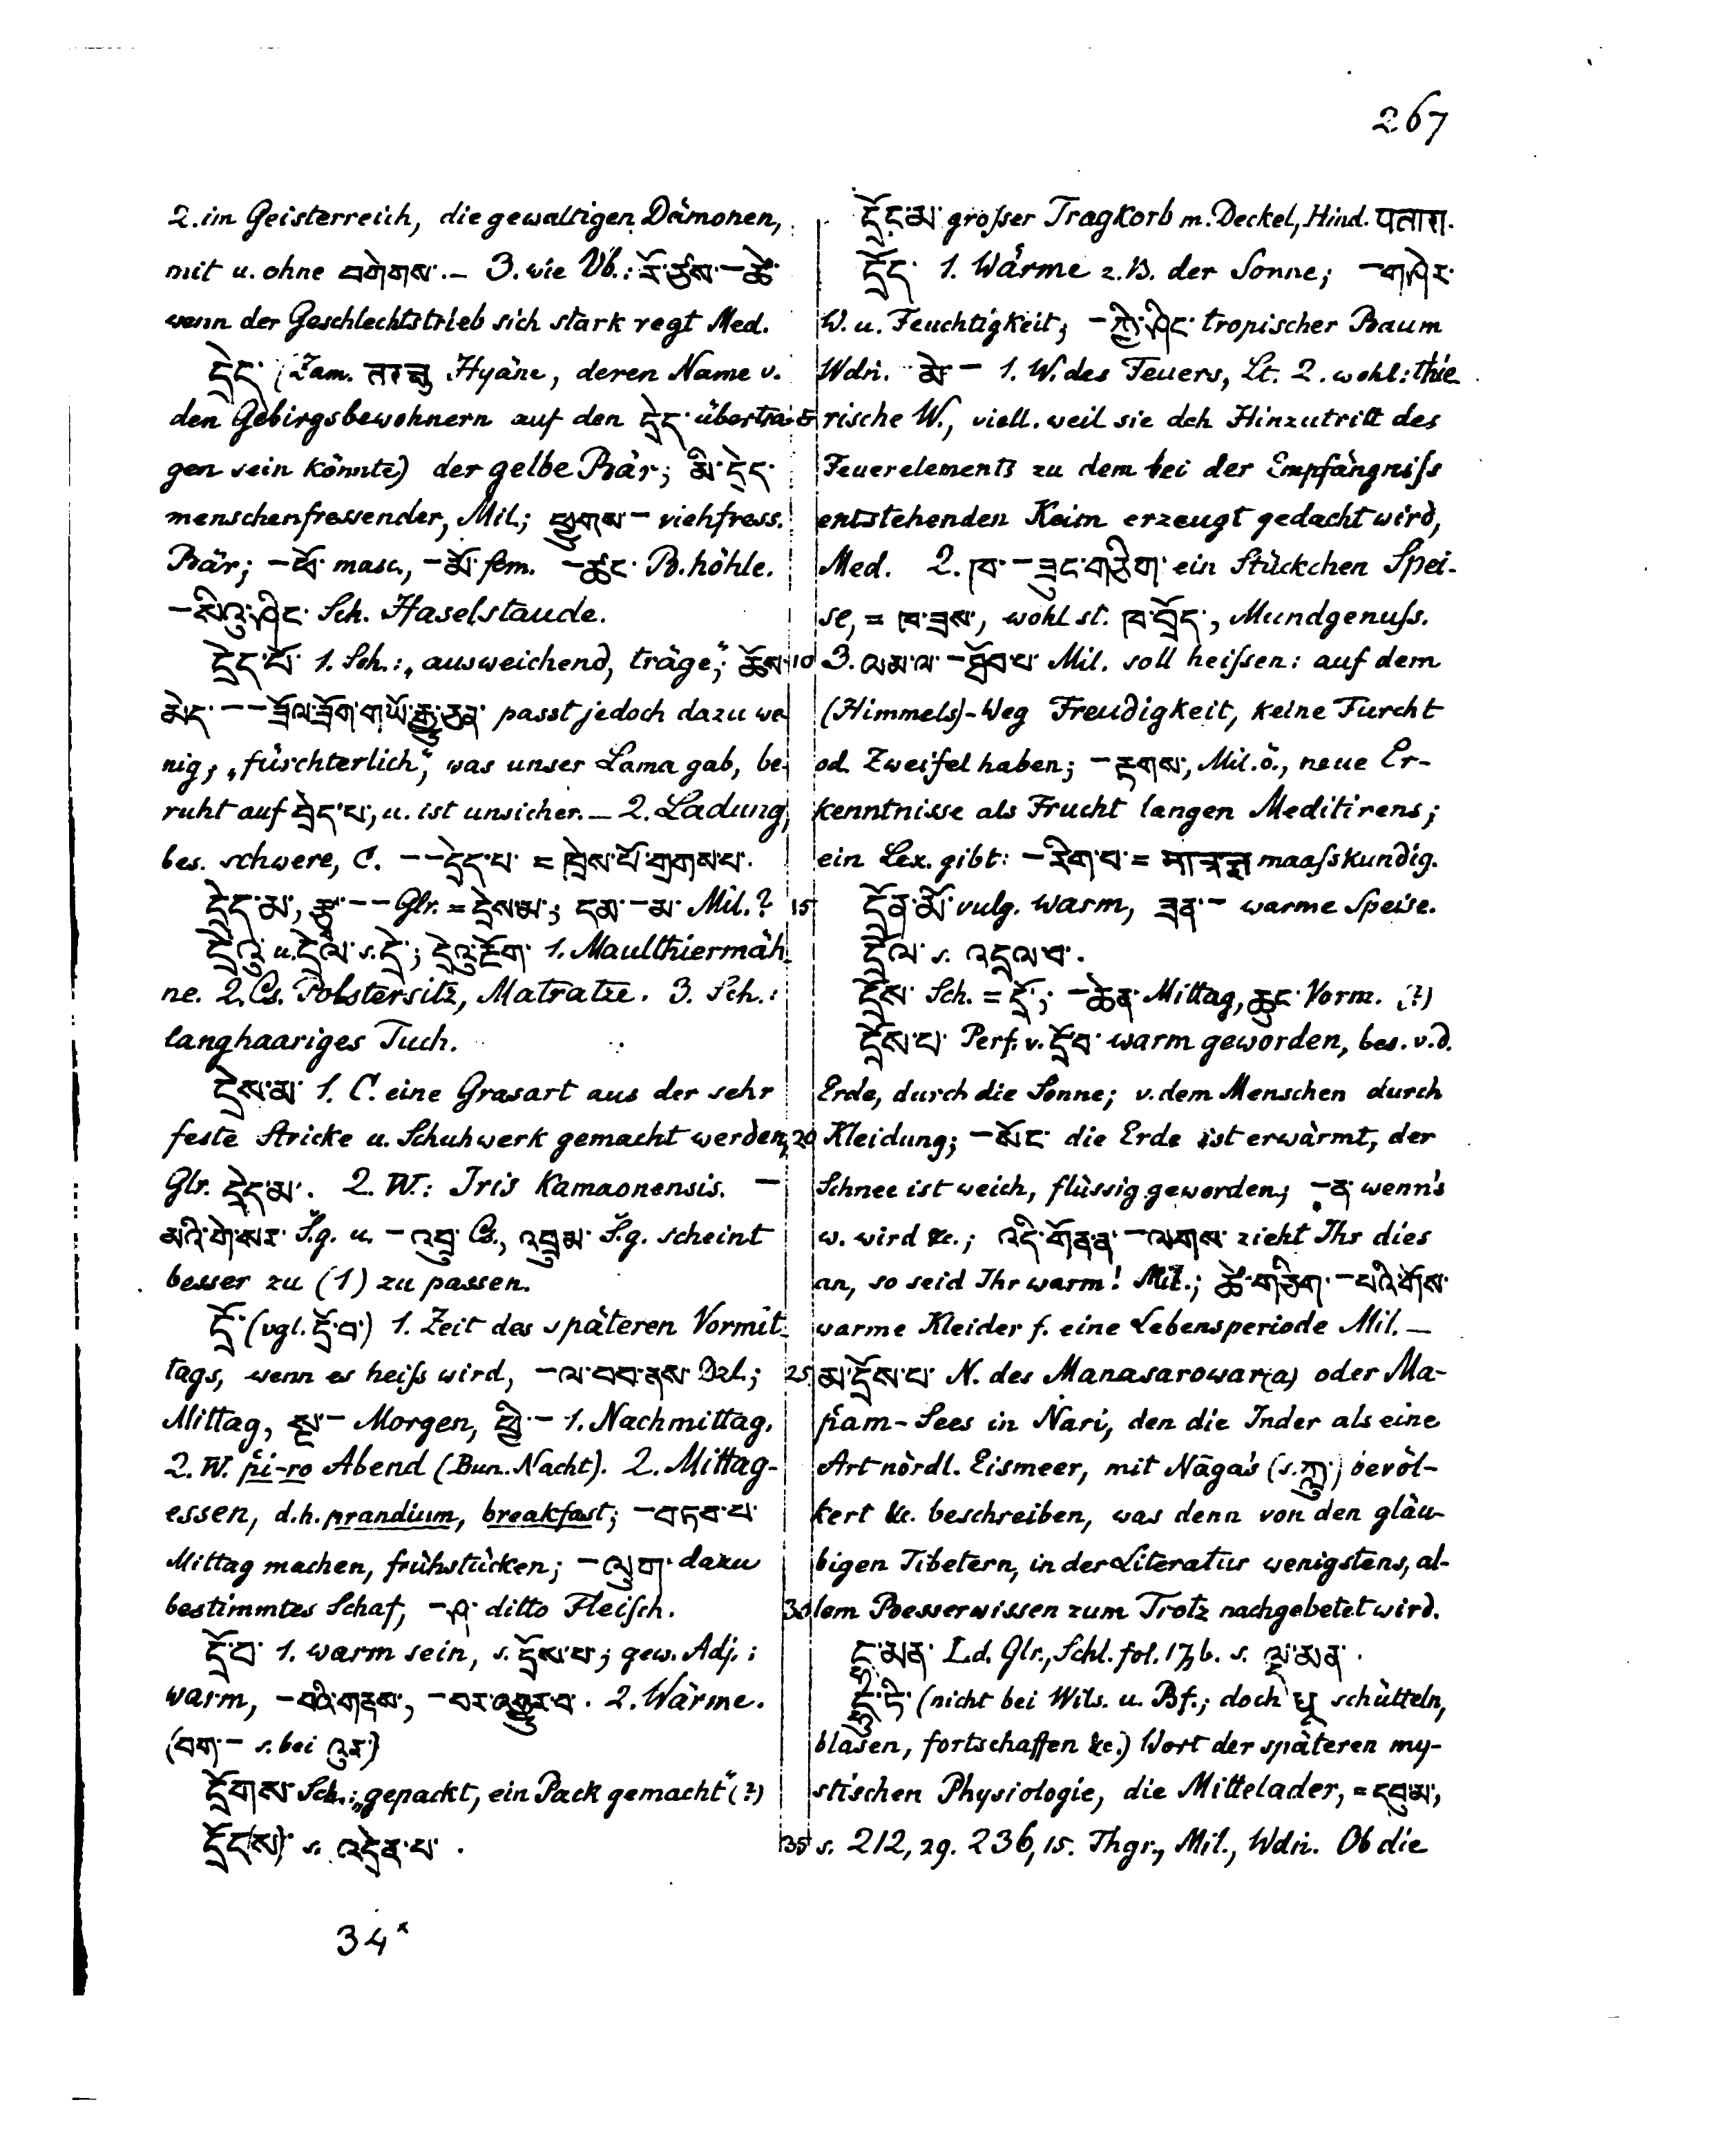 267
2. im Geisterreich, die gewaltigen Dämonen,
mit u. ohne བགེགས་. – 3. wie Vb.: རོ་ཙས་ – ཚེ་
wenn der Geschlechtstrieb sich stark regt Med.
དྲེད་ (Zam. तरक्षु Hyäne, deren Name v.
den Gebirgsbewohnern auf den དྲེད་ übertra-
gen sein könnte) der gelbe Bär; མི་དྲེད་
menschenfressender, Mil.; ཕྱུགས་ – viehfress.
Bär; – ཕོ་ masc., – མོ་ fem. – ཚང་ B.höhle.
– སིའུ་ཤིང་ Sch. Haselstaude.
དྲེད་པོ་ 1. Sch.: „ausweichend, träge,“ ཆོས་
མེད་ – – ཟོལ་ཟོག་གཡོ་རྒྱུ་ཅན་ passt jedoch dazu we-
nig; „fürchterlich“, was unser Lama gab, be-
ruht auf བྲེད་པ་, u. ist unsicher. – 2. Ladung,
bes. schwere, C. – – དྲེད་པ་ = ཁྲེས་པོ་གྲགས་པ་.
དྲེད་མ་, རྩྭ་ – – Glr. = དྲེས་མ་; དམ་ – མ་ Mil.?
དྲེའུ་ u. དྲེལ་ s. དྲེ་; དྲེའུ་རྔོག་ 1. Maulthiermäh-
ne. 2. Cs. Polstersitz, Matratze. 3. Sch.:
langhaariges Tuch.
དྲེས་མ་ 1. C. eine Grasart aus der sehr
feste Stricke u. Schuhwerk gemacht werden,
Glr. དྲེད་མ་. 2. W.: Iris Kamaonensis. –
མའི་གེ་སར་ S̆.g. u. – འབྲུ་ Cs., འབྲུམ་ S̆.g. scheint
besser zu (1) zu passen.
དྲོ་ (vgl. དྲོ་བ་) 1. Zeit des späteren Vormit-
tags, wenn es heiß wird, – ལ་བབ་ནས་ Dzl.;
Mittag, སྔ་ – Morgen, ཕྱི་ – 1. Nachmittag.
2. W. p̔i-ro Abend (Bun. Nacht). 2. Mittag-
essen, d.h. prandium, breakfast; – བཏབ་པ་
Mittag machen, frühstücken; – ལུག་ dazu
bestimmtes Schaf, – ཤ་ ditto Fleisch.
དྲོ་བ་ 1. warm sein, s. དྲོས་པ་; gew. Adj.:
warm, – བའི་གནས་, – བར་འགྱུར་བ་. 2. Wärme.
(བག་ – s. bei འུར་)
དྲོགས་ Sch.: „gepackt, ein Pack gemacht“ (?)
དྲོང(ས)་ s. འདྲེན་པ་.
34*
དྲོང་མ་ großer Tragkorb m. Deckel, Hind. पतारा.
དྲོད་ 1. Wärme z.B. der Sonne; – གཤེར་
W. u. Feuchtigkeit; – ཀྱི་ཤིང་ tropischer Baum
Wdn̄. མེ་ – 1. W. des Feuers, Lt. 2. wohl: thie-
5 rische W., viell. weil sie dch Hinzutritt des
Feuerelements zu dem bei der Empfängniß
entstehenden Keim erzeugt gedacht wird,
Med. 2. ཁ་ – ཟུང་གཅིག་ ein Stückchen Spei-
se, = ཁ་ཟས་, wohl st. ཁ་བྲོད་, Mundgenuß.
10 3. ལམ་ལ་ – ཐོབ་པ་ Mil. soll heißen: auf dem
(Himmels)-Weg Freudigkeit, keine Furcht
od. Zweifel haben; – རྟགས་, Mil. ö., neue Er-
kenntnisse als Frucht langen Meditirens;
ein Lex. gibt: – རིག་པ་ = मात्रज्ञ maaßkundig.
15 དྲོན་མོ་ vulg. warm, ཟན་ – warme Speise.
དྲོལ་ s. འདྲལ་བ་.
དྲོས་ Sch. = དྲོ་; – ཆེན་ Mittag, ཆུང་ Vorm. (?)
དྲོས་པ་ Perf. v. དྲོ་བ་ warm geworden, bes. v. d.
Erde, durch die Sonne; v. dem Menschen durch
20 Kleidung; – སོང་ die Erde ist erwärmt, der
Schnee ist weich, flüssig geworden; – ན་ wenn's
w. wird &c.; འདི་གོན་ན་ – ལགས་ zieht Ihr dies
an, so seid Ihr warm! Mil.; ཚེ་གཅིག་ – པའི་གོས་
warme Kleider f. eine Lebensperiode Mil. –
25 མ་དྲོས་པ་ N. des Manasarowar(a) oder Ma-
p̔am-Sees in Nari, den die Inder als eine
Art nördl. Eismeer, mit Nāga's (s. ཀླུ་) bevöl-
kert &c. beschreiben, was denn von den gläu-
bigen Tibetern, in der Literatur wenigstens, al-
30 lem Besserwissen zum Trotz nachgebetet wird.
ད་མན་ Ld. Glr., Schl. fol. 17, b. s. ལྡ་མན་.
དྷཱུ་ཏི་ (nicht bei Wils. u. Bf.; doch धू schütteln,
blasen, fortschaffen &c.) Wort der späteren my-
stischen Physiologie, die Mittelader, = དབུ་མ་,
35 s. 212, 29. 236, 15. Thgr., Mil., Wdn̄. Ob die